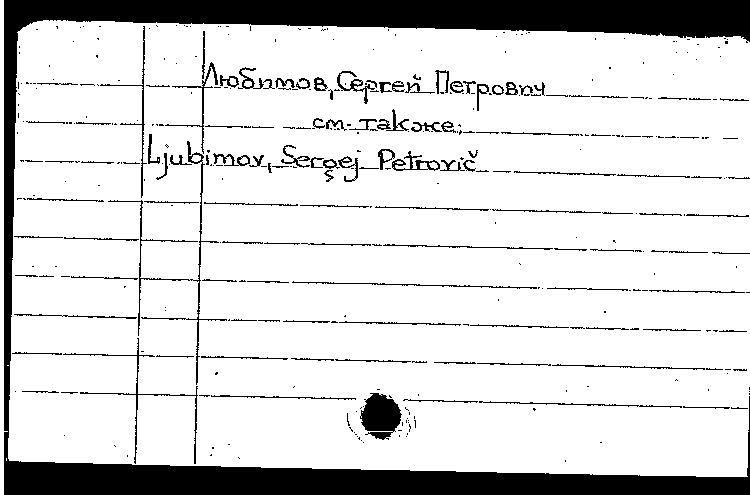 Любимов, Сергей Петрович
см. также:
Ljubimov, Sergej Petrovič